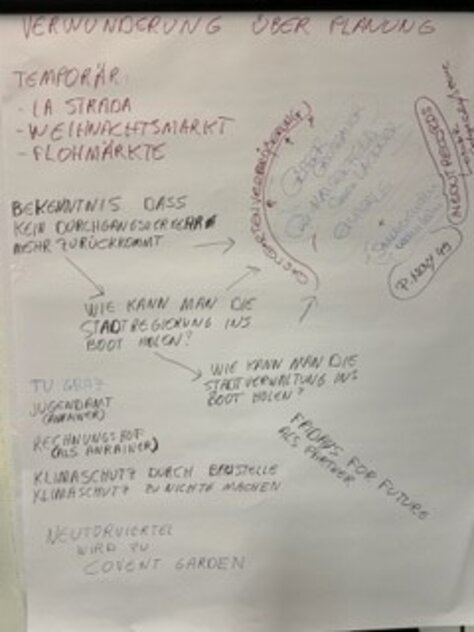 VERWUNDERUNG ÜBER PLANUNG
TEMPORÄR:
- LA STRADA
- WEIHNACHTSMARKT
- FLOHMÄRKTE
BEKENNTNIS DASS
KEIN DURCHGANGSVERKEHR
MEHR ZURÜCKKOMMT
GASTGARTENVERGRÖSSERUNG
P. NOVY 49
WIE KANN MAN DIE
STADTREGIERUNG INS
BOOT HOLEN?
WIE KANN MAN DIE
STADTVERWALTUNG INS
BOOT HOLEN?
TU GRAZ
JUGENDAMT
(ANRAINER)
RECHNUNGSHOF
(ALS ANRAINER)
KLIMASCHUTZ DURCH BAUSTELLE
KLIMASCHUTZ ZU NICHTE MACHEN
FRIDAYS FOR FUTURE
ALS PARTNER
NEUTORVIERTEL
WIRD ZU
COVENT GARDEN